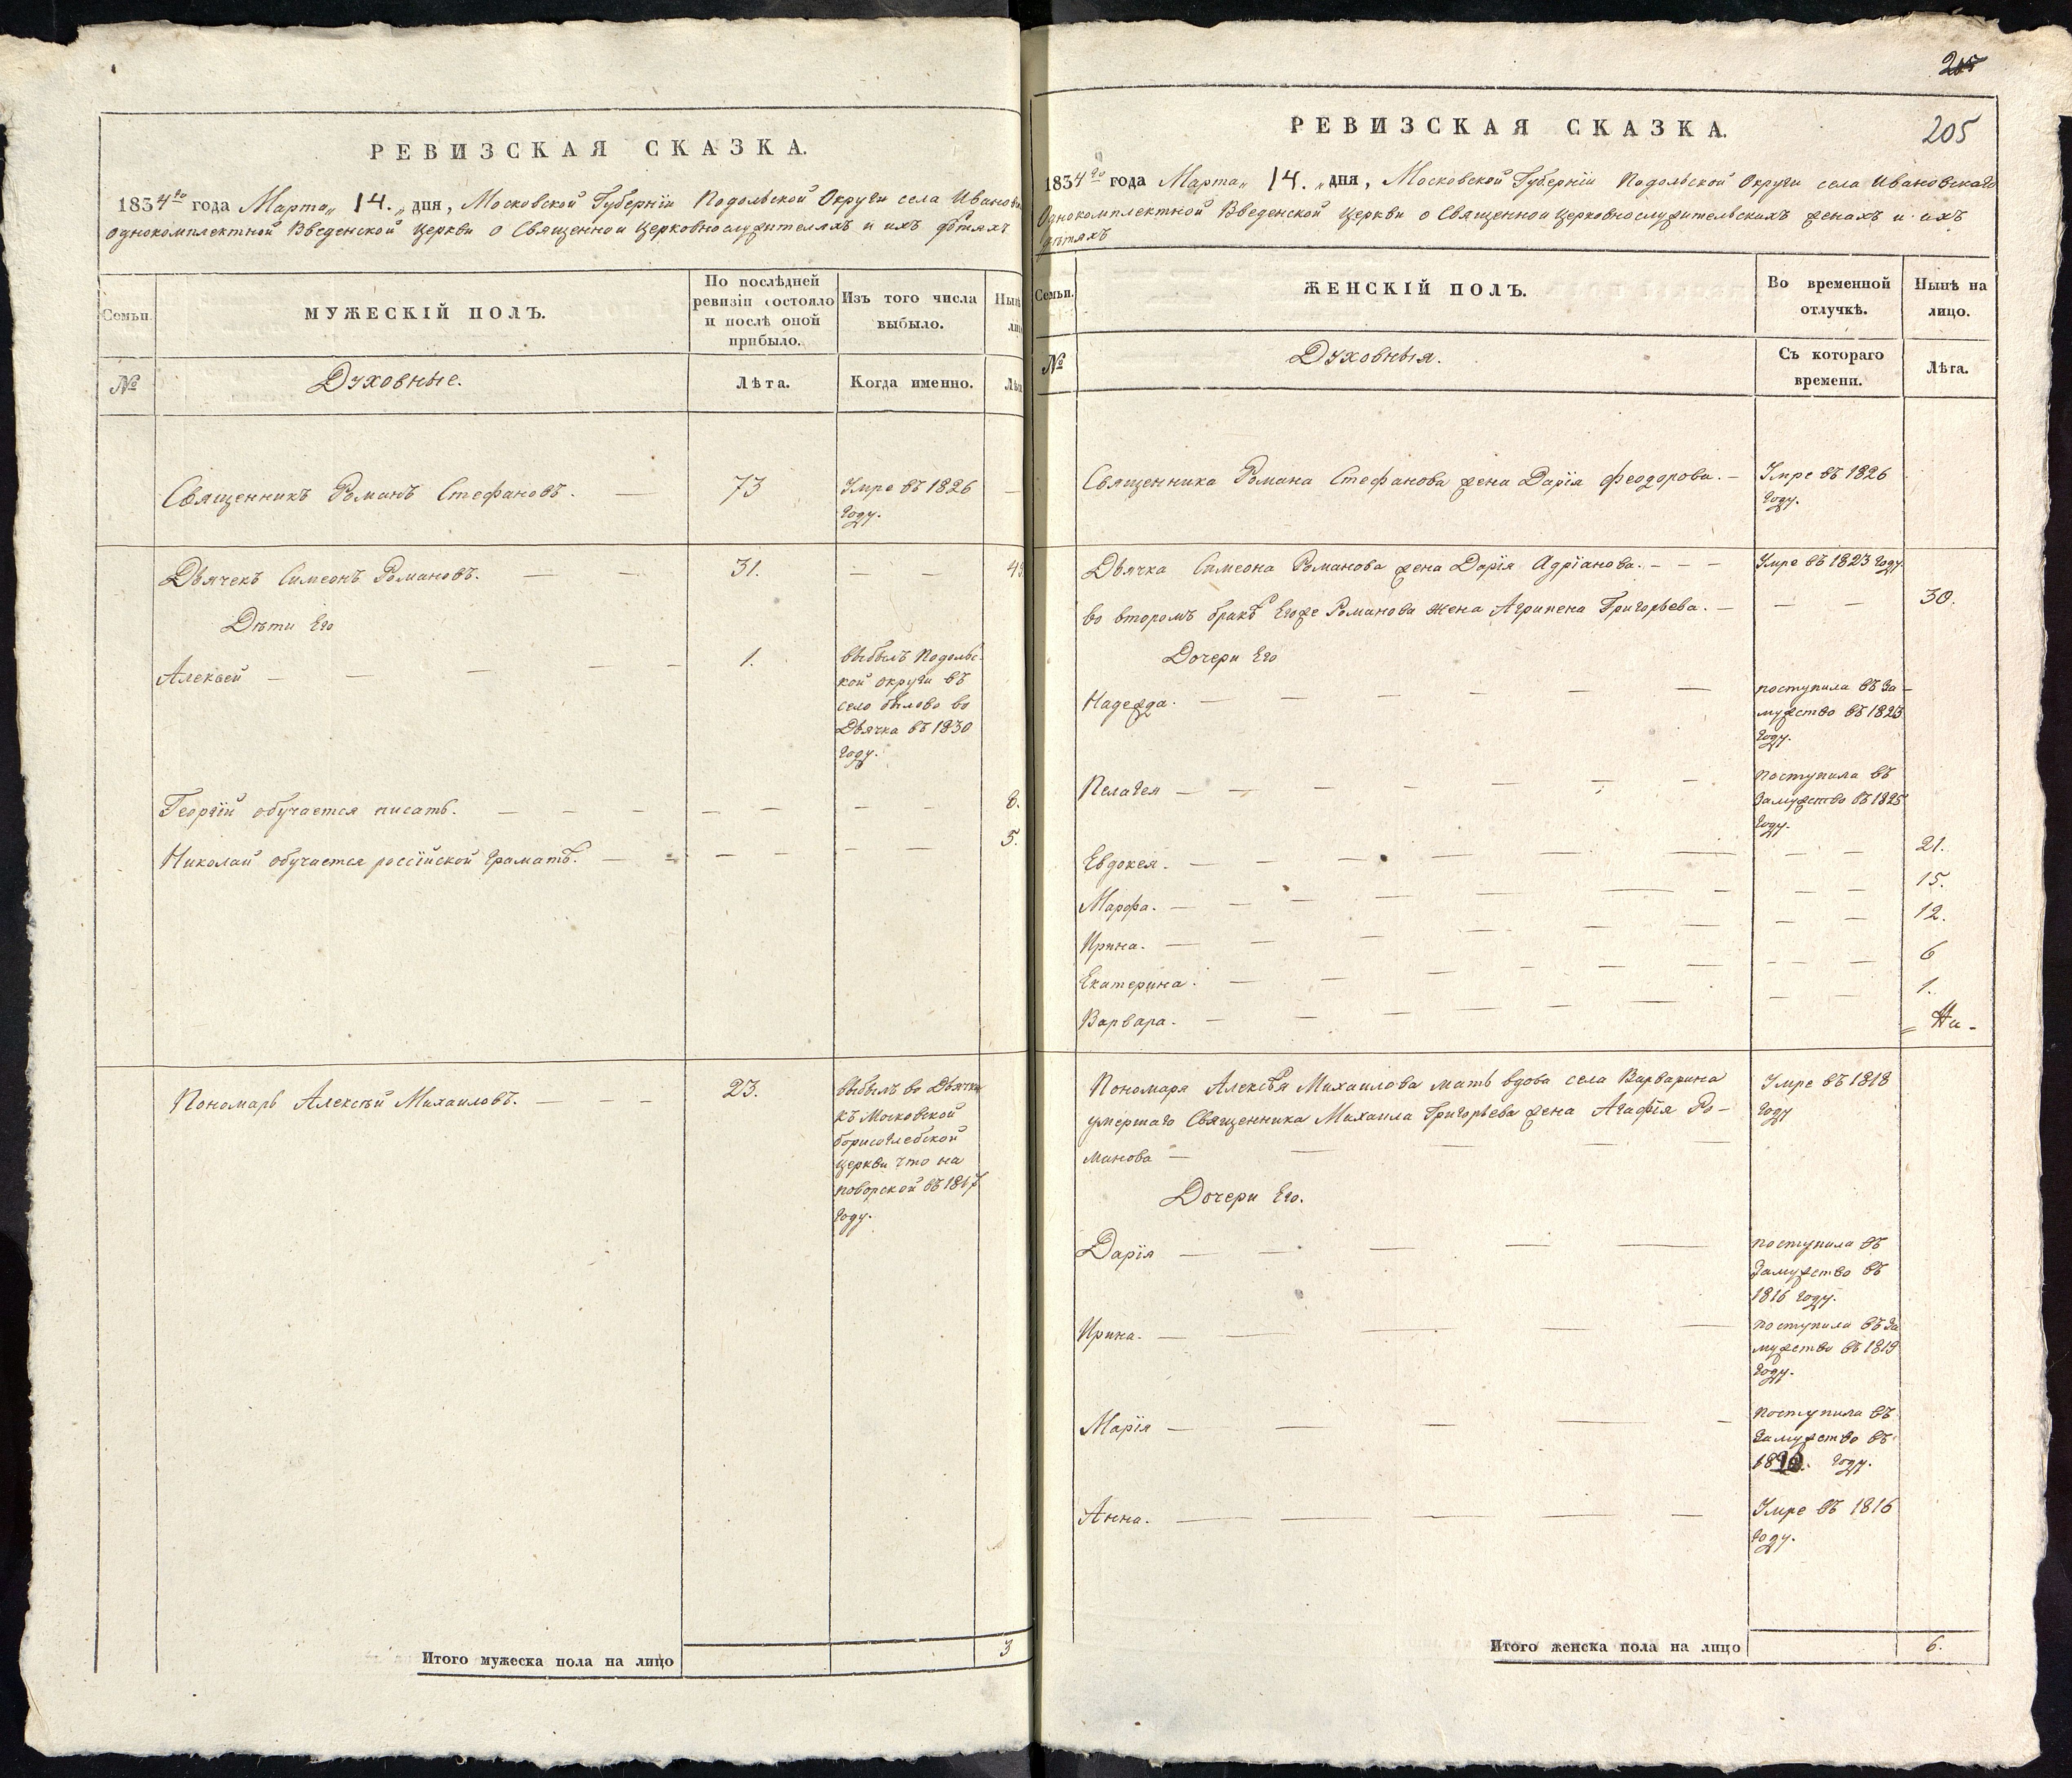 РЕВИЗСКАЯ СКАЗКА.
1834го года Марта „ 14. „ дня, Московской Губернїи Подольской Округи села Иванов
однокомплектной Введенской церкви о Священнои церковнослужителяхъ и ихъ дѣтяхъ
Семьи.
МУЖЕСКІЙ ПОЛЪ.
По послѣдней ревизіи состояло и послѣ оной прибыло.
Изъ того числа выбыло.
Нынѣ
№
Духовные.
Лѣта.
Когда именно.
Священникъ Романъ Стефановъ. — 73 Умре въ 1826
году.
Дьячекъ Симеонъ Романовъ. — — 31. — —
Дѣти Его
Алексей — — — — — 1. выбылъ Подольс-
кой округи въ
село былово во
Дьячка въ 1830
году.
Георгій обучается писать. — — — — — — — 8.
Николай обучается россїйской граматѣ. — — — — — — 5.
Пономарь Алексѣй Михаиловъ. — — — 23. выбылъ во Дьячка
къ Московской
борисоглебской
церкви что на
поворской въ 1817
году.
Итого мужеска пола на лицо 3
205
РЕВИЗСКАЯ СКАЗКА.
205
1834го года Марта „ 14. „ дня, Московской Губернїи Подольской Округи села Ивановскаго
Однокомплектной Введенской церкви о Священнои церковнослужительскихъ женахъ и ихъ
дѣтяхъ
Семьи.
ЖЕНСКІЙ ПОЛЪ.
Во временной отлучкѣ.
Нынѣ на лицо.
№
Духовныя.
Съ котораго времени.
Лѣта.
Священника Романа Стефанова жена Дарїя Феодорова. — Умре въ 1826
году.
Дьячка Симеона Романова жена Дарїя Адрїанова. — — — Умре въ 1823 году
во второмъ бракѣ Егоже Романова жена Агрипена Григорьева. — — — 30.
Дочери Его
Надежда. — — — — — — — поступила въ за-
мужство въ 1823
году.
Пелагея — — — — — — — поступила въ
замужство въ 1825
году.
Евдокея. — — — — — — — — — 21.
Марфа. — — — — — — — — — 15.
Ирина. — — — — — — — — 12.
Екатерина. — — — — — — — — — 6
Варвара. — — — — — — — — 1.
Пономаря Алексѣя Михаилова мать вдова села Варварина Умре въ 1818
умершаго Священника Михаила Григорьева жена Агафїя Ро- году
манова — — — —
Дочери Его.
Дарїя — — — — — поступила въ
Замужство въ
1816 году.
Ирина. — — — — — поступила въ за
мужство въ 1819
году.
Марїя — — — — — поступила въ
замужство въ
году.
Анна. — — — — — Умре въ 1816
году.
Итого женска пола на лицо 6.